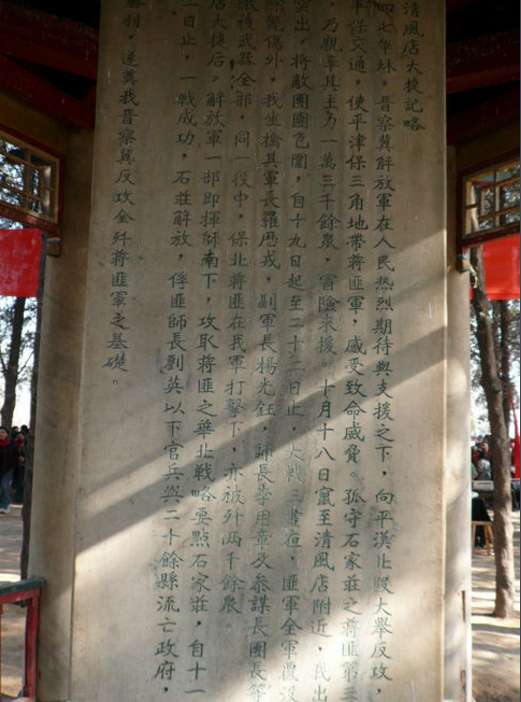 清風店大捷記略
四七年秋，晋察冀解放軍在人民热烈期待與支援之下，向平漢北段大舉反攻，
保交通，使平津保三角地帶蒋匪軍，感受致命威脅。孤守石家莊之蒋匪第三
，乃親率其主力一萬三千餘衆，冒險來援。十月十八日竄至清風店附近，我出
出，將敵團團包圍，自十九日起至二十二日止，大戰三晝夜，匪軍全軍覆没
斃傷外，我生擒其軍長羅歷戎，副軍長楊光鈺，師長李用章及參謀長團長等
獲武器全部，同一役中，保北蒋匪在我軍打擊下，亦被歼两千餘衆。
店大捷后，解放軍一部即揮師南下，攻取蒋匪之華北戰略要點石家莊，自十一
二日止，一戰成功，石莊解放，俘匪師長劉英以下官兵與二十餘縣流亡政府，
勝利，遂奠我晋察冀反攻全歼蒋匪軍之基礎。